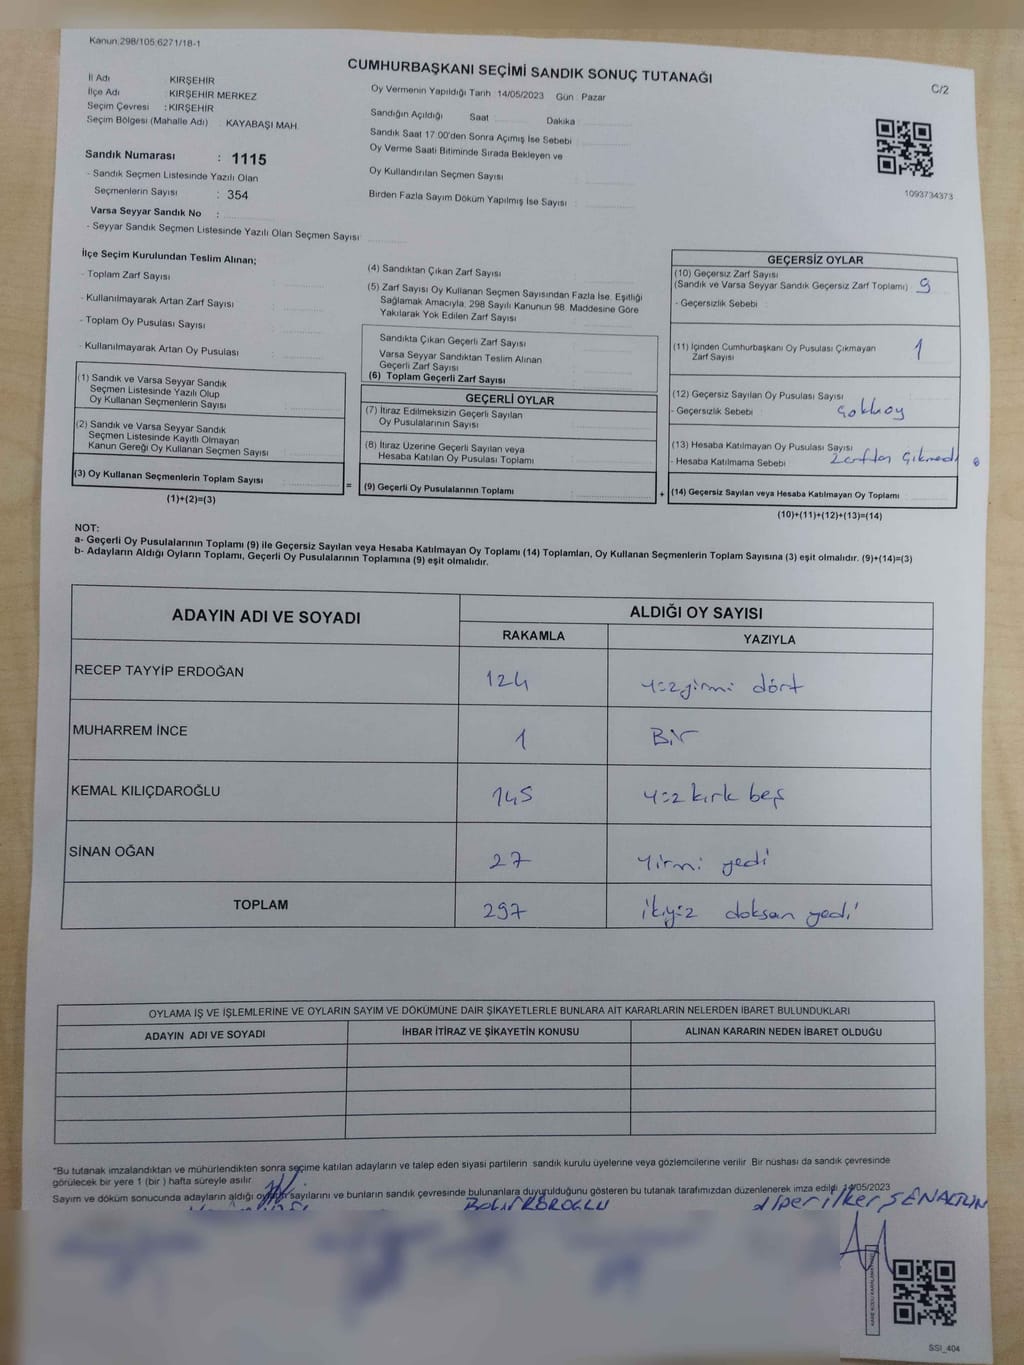 Kanun:298/105;6271/18-1
CUMHURBAŞKANI SEÇİMİ SANDIK SONUÇ TUTANAĞI
C/2
İl Adı KIRŞEHİR
İlçe Adı : KIRŞEHİR MERKEZ
Seçim Çevresi : KIRŞEHİR
Seçim Bölgesi (Mahalle Adı) : KAYABAŞI MAH.
Sandık Numarası : 1115
- Sandık Seçmen Listesinde Yazılı Olan
Seçmenlerin Sayısı : 354
Varsa Seyyar Sandık No :
- Seyyar Sandık Seçmen Listesinde Yazılı Olan Seçmen Sayısı
Oy Vermenin Yapıldığı Tarih :14/05/2023 Gün : Pazar
Sandığın Açıldığı Saat Dakika
Sandık Saat 17:00'den Sonra Açımış İse Sebebi
Oy Verme Saati Bitiminde Sırada Bekleyen ve
Oy Kullandırılan Seçmen Sayısı
Birden Fazla Sayım Döküm Yapılmış İse Sayısı
1093734373
İlçe Seçim Kurulundan Teslim Alınan;
- Toplam Zarf Sayısı
- Kullanılmayarak Artan Zarf Sayısı
- Toplam Oy Pusulası Sayısı
- Kullanılmayarak Artan Oy Pusulası
(1) Sandık ve Varsa Seyyar Sandık
Seçmen Listesinde Yazılı Olup
Oy Kullanan Seçmenlerin Sayısı
(2) Sandık ve Varsa Seyyar Sandık
Seçmen Listesinde Kayıtlı Olmayan
Kanun Gereği Oy Kullanan Seçmen Sayısı
(3) Oy Kullanan Seçmenlerin Toplam Sayısı
(1)+(2)=(3)
(4) Sandıktan Çıkan Zarf Sayısı
(5) Zarf Sayısı Oy Kullanan Seçmen Sayısından Fazla İse, Eşitliği
Sağlamak Amacıyla, 298 Sayılı Kanunun 98. Maddesine Göre
Yakılarak Yok Edilen Zarf Sayısı
Sandıkta Çıkan Geçerli Zarf Sayısı
Varsa Seyyar Sandıktan Teslim Alınan
Geçerli Zarf Sayısı
(6) Toplam Geçerli Zarf Sayısı
GEÇERLİ OYLAR
(7) İtiraz Edilmeksizin Geçerli Sayılan
Oy Pusulalarının Sayısı
(8) İtiraz Üzerine Geçerli Sayılan veya
Hesaba Katılan Oy Pusulası Toplamı
= (9) Geçerli Oy Pusulalarının Toplamı +
GEÇERSİZ OYLAR
(10) Geçersiz Zarf Sayısı
(Sandık ve Varsa Seyyar Sandık Geçersiz Zarf Toplamı) 9
- Geçersizlik Sebebi
(11) İçinden Cumhurbaşkanı Oy Pusulası Çıkmayan 1
Zarf Sayısı
(12) Geçersiz Sayılan Oy Pusulası Sayısı
- Geçersizlik Sebebi
(13) Hesaba Katılmayan Oy Pusulası Sayısı
- Hesaba Katılmama Sebebi Zarftan Çıkmadı
(14) Geçersiz Sayılan veya Hesaba Katılmayan Oy Toplamı
(10)+(11)+(12)+(13)=(14)
NOT:
a- Geçerli Oy Pusulalarının Toplamı (9) ile Geçersiz Sayılan veya Hesaba Katılmayan Oy Toplamı (14) Toplamları, Oy Kullanan Seçmenlerin Toplam Sayısına (3) eşit olmalıdır. (9)+(14)=(3)
b- Adayların Aldığı Oyların Toplamı, Geçerli Oy Pusulalarının Toplamına (9) eşit olmalıdır.
ADAYIN ADI VE SOYADI
ALDIĞI OY SAYISI
RAKAMLA YAZIYLA
RECEP TAYYİP ERDOĞAN 124 yüzyirmi dört
MUHARREM İNCE 1 Bir
KEMAL KILIÇDAROĞLU 145 yüz kırk beş
SİNAN OĞAN 27 Yirmi yedi
TOPLAM 297 ikiyüz doksan yedi
OYLAMA İŞ VE İŞLEMLERİNE VE OYLARIN SAYIM VE DÖKÜMÜNE DAİR ŞİKAYETLERLE BUNLARA AİT KARARLARIN NELERDEN İBARET BULUNDUKLARI
ADAYIN ADI VE SOYADI İHBAR İTİRAZ VE ŞİKAYETİN KONUSU ALINAN KARARIN NEDEN İBARET OLDUĞU
*Bu tutanak imzalandıktan ve mühürlendikten sonra seçime katılan adayların ve talep eden siyasi partilerin sandık kurulu üyelerine veya gözlemcilerine verilir. Bir nüshası da sandık çevresinde
görülecek bir yere 1 (bir) hafta süreyle asılır.
Sayım ve döküm sonucunda adayların aldığı oyların sayılarını ve bunların sandık çevresinde bulunanlara duyurulduğunu gösteren bu tutanak tarafımızdan düzenlenerek imza edildi. 14/05/2023
SSI_404